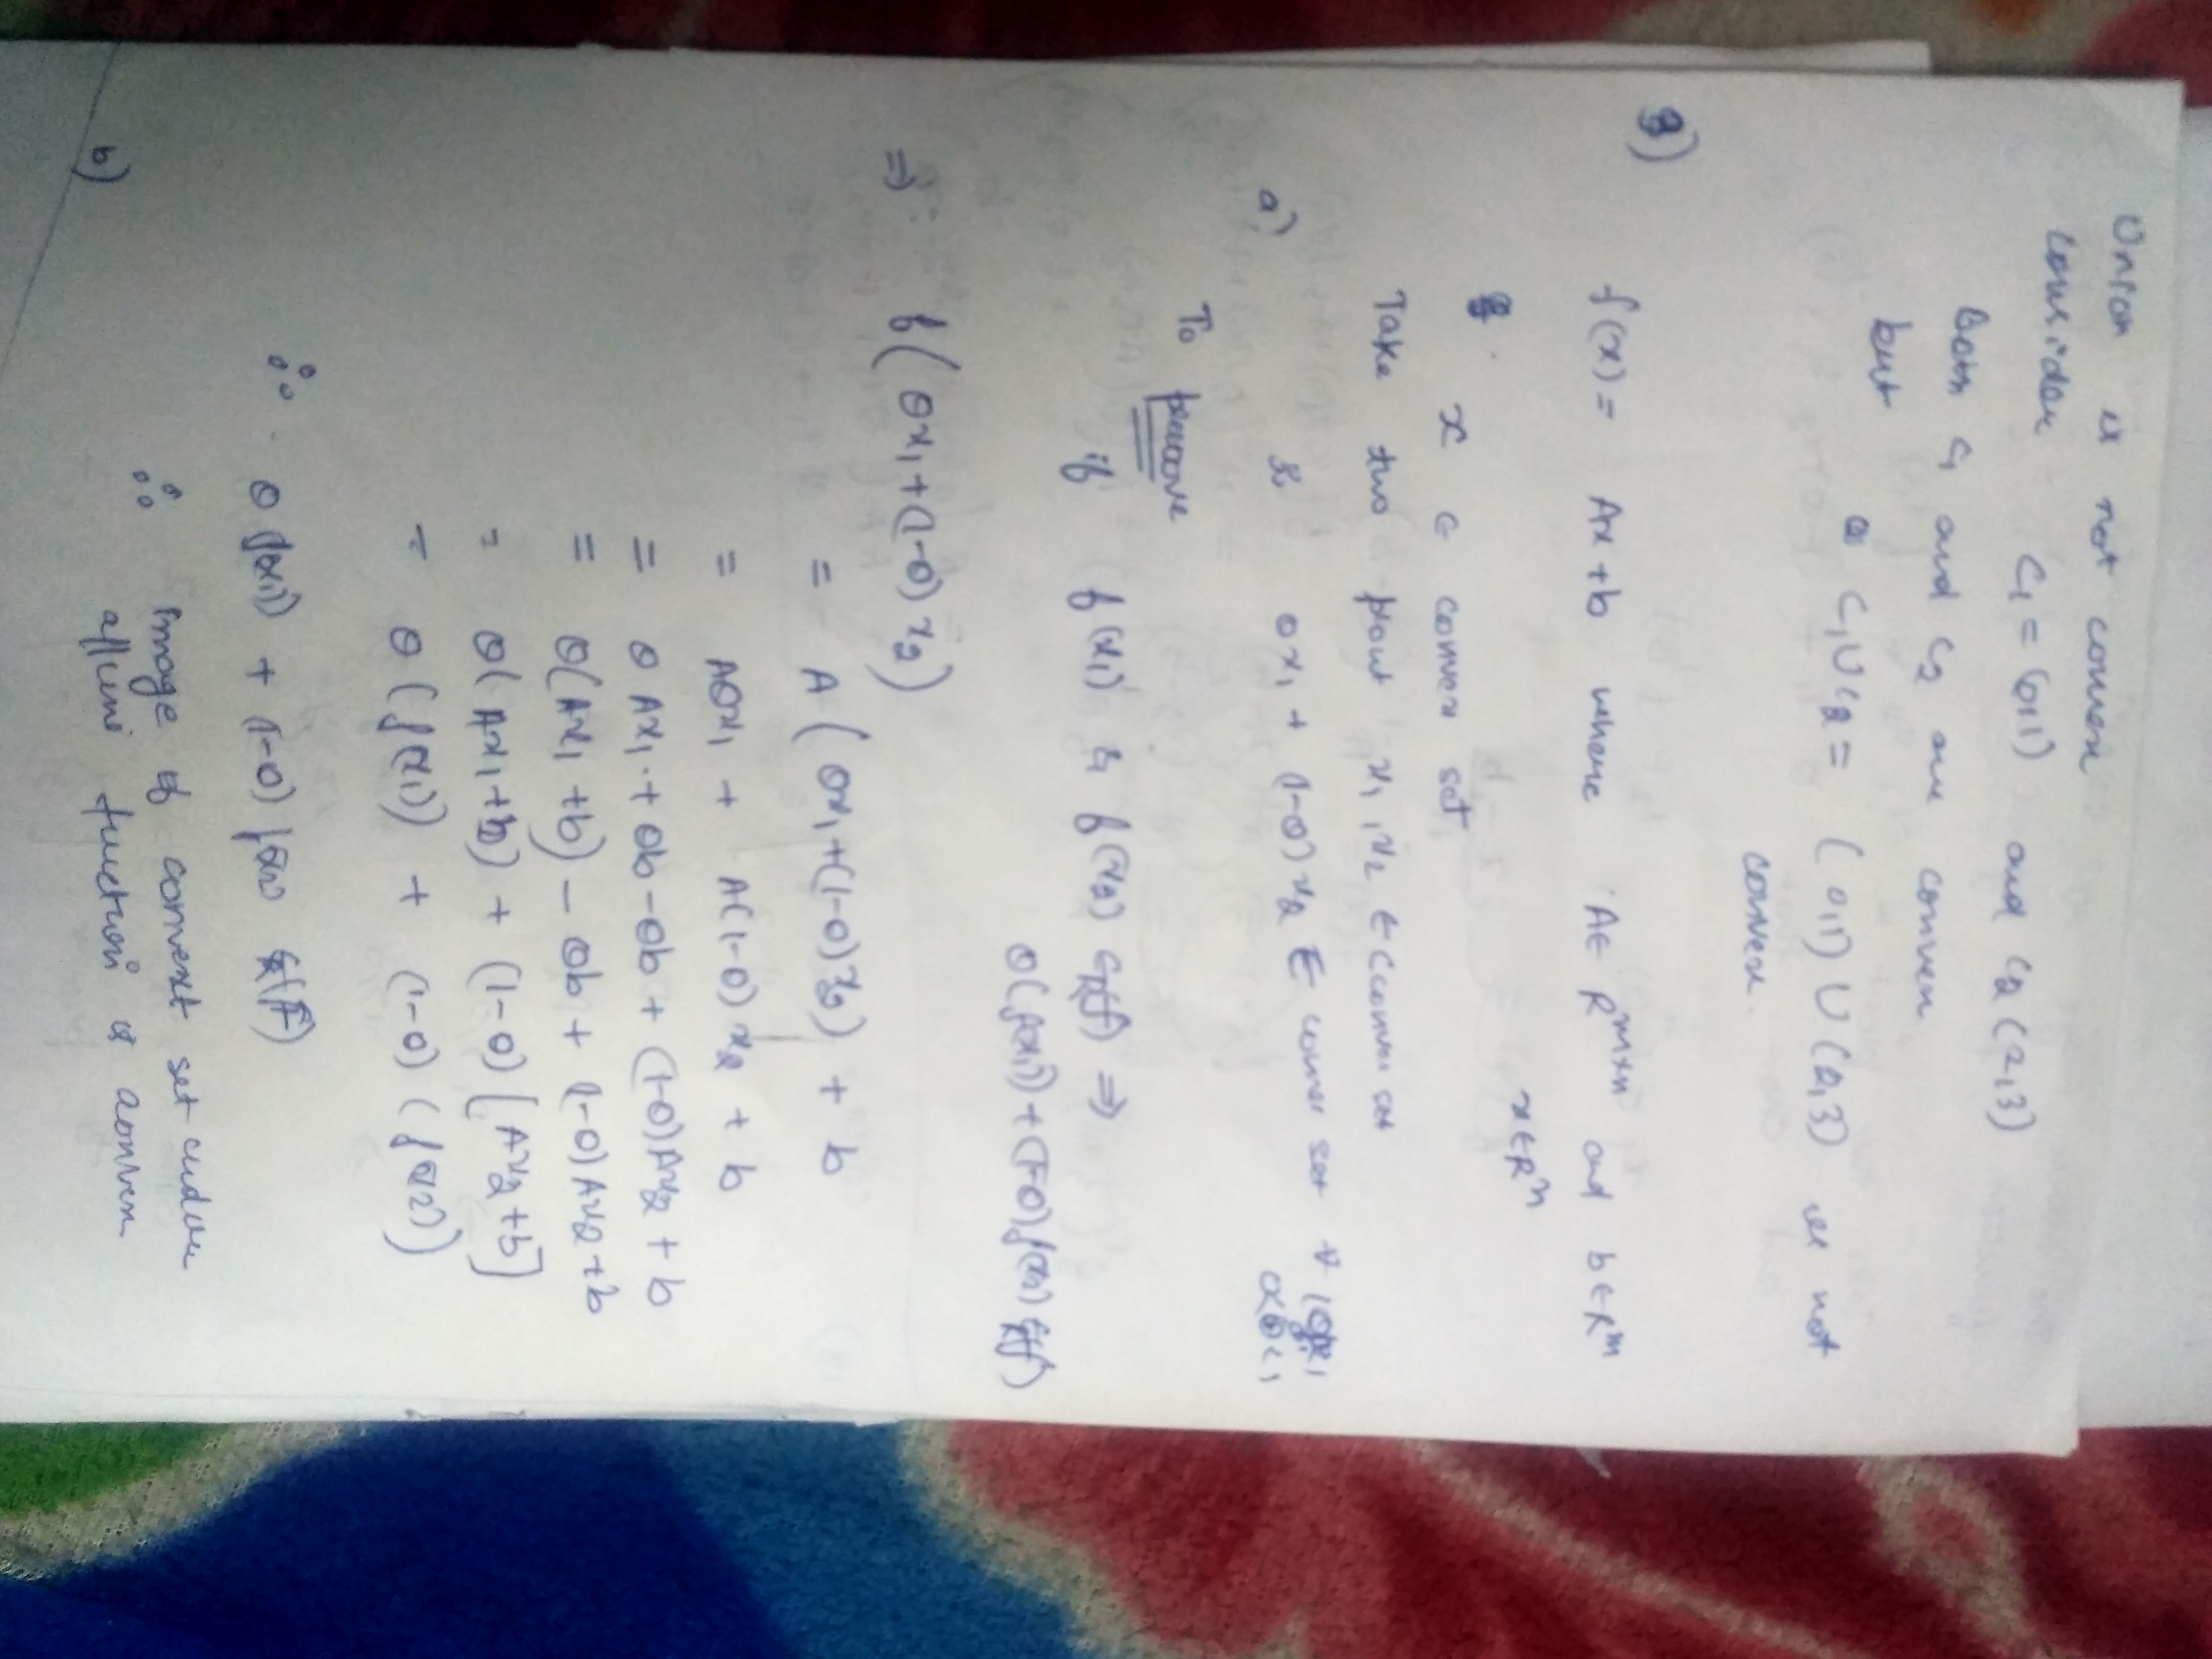 Union is not convex
consider C₁ = (0,1) and C₂ (2,3)
Both C₁ and C₂ are convex
but
C₁ ∪ C₂ = (0,1) ∪ (2,3) is not
convex.
3)
f(x) = Ax + b where A ∈ R^{m×n} and b ∈ R^m
x ∈ R^n
x ∈ convex set
Take two point x₁, x₂ ∈ C convex set
a) & θx₁ + (1-θ)x₂ ∈ convex set ∀
0<θ<1
To
if f(x₁) & f(x₂) ⇒
θ(f(x₁)) + (1-θ)f(x₂)
⇒ f(θx₁ + (1-θ)x₂)
= A(θx₁ + (1-θ)x₂) + b
= Aθx₁ + A(1-θ)x₂ + b
= θAx₁ + θb - θb + (1-θ)Ax₂ + b
= θ(Ax₁ + b) - θb + (1-θ)Ax₂ + b
= θ(Ax₁ + b) + (1-θ)[Ax₂ + b]
= θ(f(x₁)) + (1-θ)(f(x₂))
∴ θf(x₁) + (1-θ)f(x₂)
∴ Image of convext set under
affine function is convex
b)